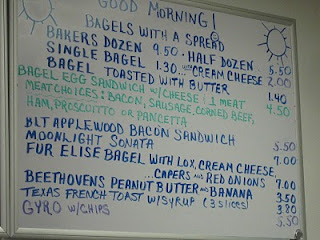 GOOD MORNING!
BAGELS WITH A SPREAD
BAKERS DOZEN 9.50 · HALF DOZEN 5.50
SINGLE BAGEL 1.30 ... WITH CREAM CHEESE 2.00
BAGEL TOASTED WITH BUTTER 1.40
BAGEL EGG SANDWICH W/CHEESE & 1 MEAT 4.50
MEAT CHOICES: BACON, SAUSAGE, CORNED BEEF,
HAM, PROSCUITTO OR PANCETTA
BLT APPLEWOOD BACON SANDWICH 5.50
MOONLIGHT SONATA 7.00
FUR ELISE BAGEL WITH LOX, CREAM CHEESE,
...CAPERS AND RED ONIONS 7.00
BEETHOVENS PEANUT BUTTER AND BANANA 3.50
TEXAS FRENCH TOAST W/SYRUP (3 SLICES) 3.80
GYRO W/CHIPS 5.50